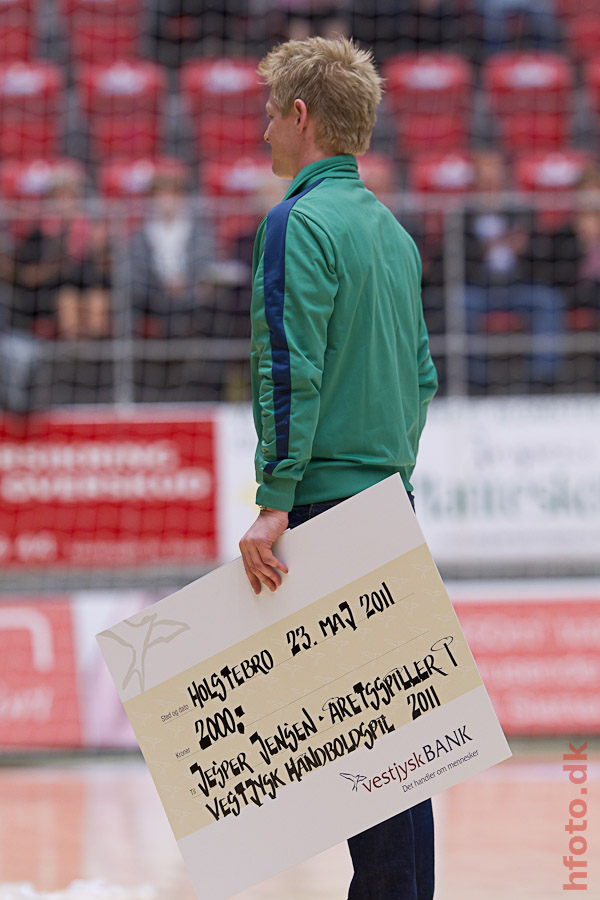 SIKRING
OVERSKUD
Sted og dato HOLSTEBRO 23. MAJ 2011
Kroner 2000:
Til JESPER JENSEN - ÅRETSSPILLER I
VESTJYSK HÅNDBOLDSPIL 2011
vestjyskBANK
Det handler om mennesker
hfoto.dk